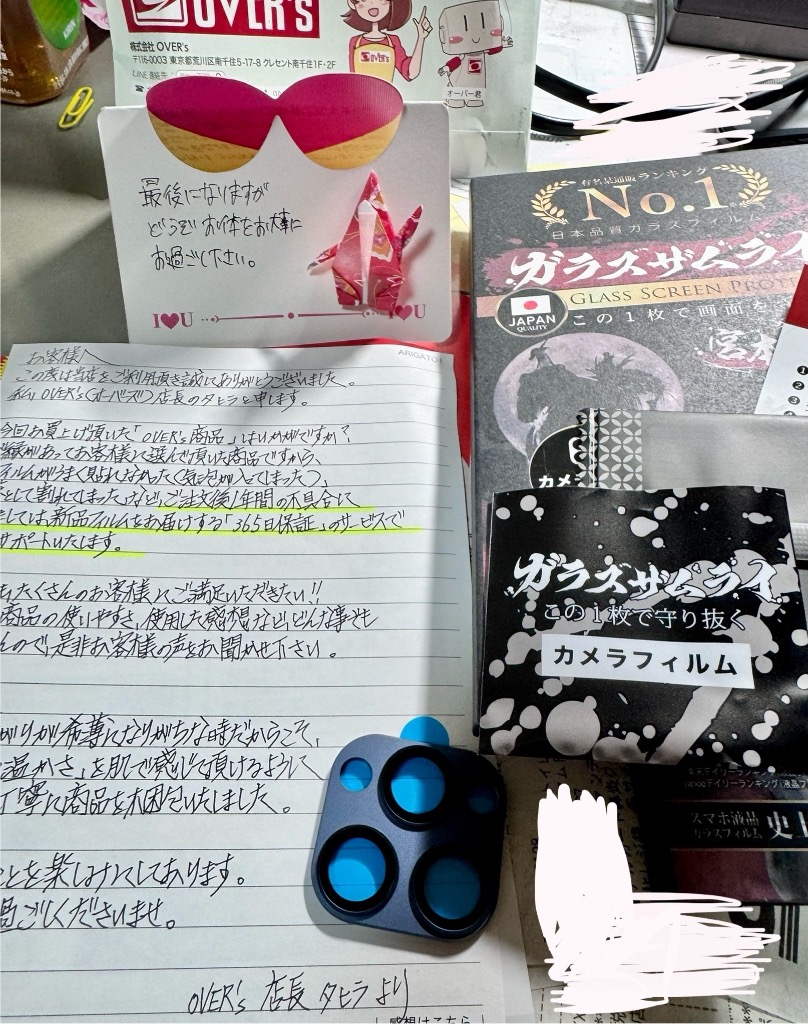 OVER's
株式会社 OVER's
〒116-0003 東京都荒川区南千住5-17-8 クレセント南千住1F・2F
LINE連絡先
オーバー君
最後になりますが
どうぞお体をお大事に
お過ごし下さい。
I♥U
I♥U
有名某通販ランキング
No.1
日本品質ガラスフィルム
ガラスザムライ
GLASS SCREEN PROT
JAPAN
QUALITY
この1枚で画面を
宮本
ARIGATO
お客様へ
この度は当店をご利用頂き誠にありがとうございました。
私、OVER's(オーバーズ)店長のタヒラと申します。
今回お買上げ頂いた「OVER's商品」はいかがですか?
縁があってお客様に選んで頂いた商品ですから、
ィルムがうまく貼れなかった(気泡が入ってしまった)、
として割れてしまった」など、ご注文後1年間の不具合に
しては新品フィルムをお届けする「365日保証」のサービスで
サポートいたします。
もたくさんのお客様にご満足いただきたい!!
商品の使いやすさ、使用した感想など、どんな事でも
んので、是非お客様の声をお聞かせ下さい。
がりが希薄になりがちな時だからこそ、
温かさ」を肌で感じて頂けるように
丁寧に商品を梱包いたしました。
ことを楽しみにしております。
過ごしくださいませ。
OVER's 店長 タヒラ より
感想はこちら
カメ
ガラスザムライ
この1枚で守り抜く
カメラフィルム
楽天デイリーランキング
スマホ液晶
ガラスフィルム
史上